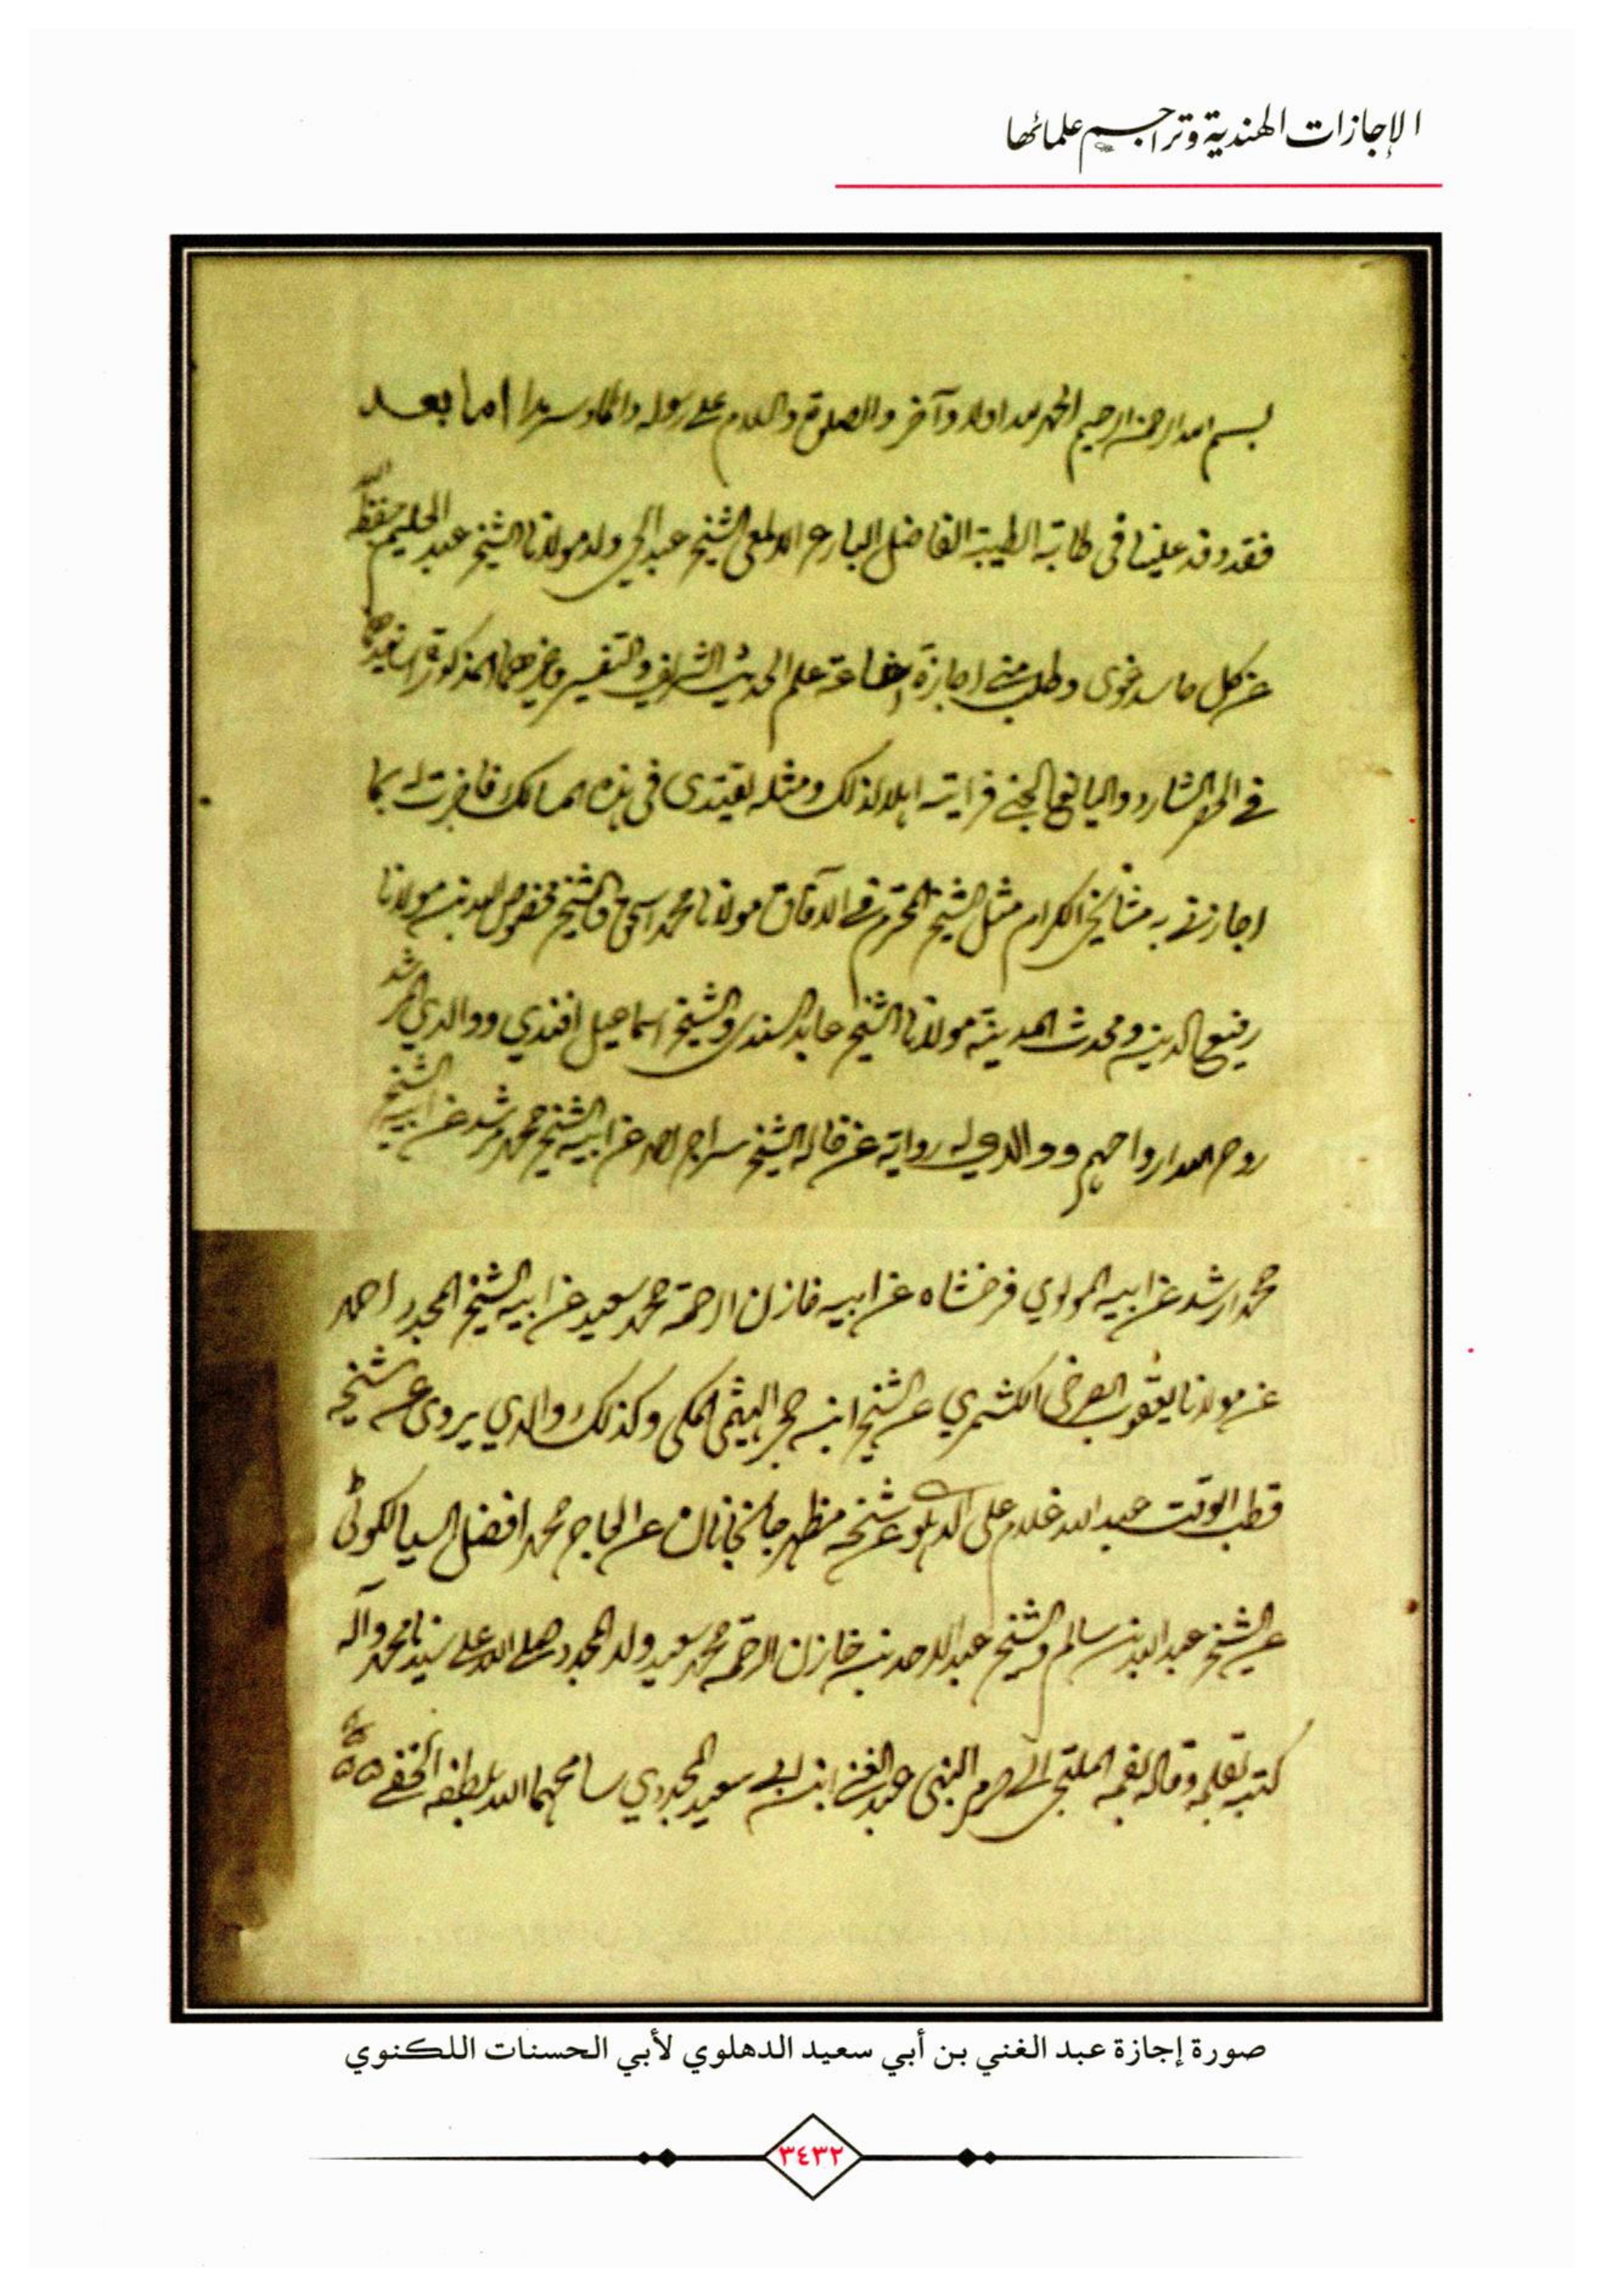 الإجازات الهندية وتراجم علمائها
بسم الله الرحمن الرحيم الحمد لله اولا وآخرا والصلوة والسلام على رسوله دائما وسرمدا اما بعد
فقد وفد علينا فى طابة الطيبة الفاضل البارع الالمعى الشيخ عبد الحى ولد مولانا الشيخ عبد الحليم حفظه الله
عن كل حاسد غوى وطلب منى اجازة علم الحديث الشريف والتفسير وغيرهما المذكورة اسانيدها
فى الحصر الشارد واليانع الجنى فرايته اهلا لذلك ومثله يقتدى فى هذه الممالك فاجزت له بما
اجازنى به مشايخى الكرام مثل الشيخ المحترم فى الآفاق مولانا محمد اسحق والشيخ مخصوص الله بن مولانا
رفيع الدين ومحدث المدينة مولانا الشيخ عابد السندى والشيخ اسماعيل افندي ووالدي المرشد
روح الله ارواحهم ووالدي له رواية عن خاله الشيخ سراج احمد عن ابيه الشيخ محمد مرشد عن ابيه الشيخ
محمد ارشد عن ابيه المولوي فرخشاه عن ابيه خازن الرحمة محمد سعيد عن ابيه الشيخ المجدد احمد
عن مولانا يعقوب الصرفى الكشمري عن الشيخ ابن حجر الهيثمى المكى وكذلك والدي يروى عن شيخه
قطب الوقت عبد الله غلام على الدهلوى عن شيخه مظهر جانجانان عن الحاج محمد افضل السيالكوٹى
عن الشيخ عبد الله بن سالم والشيخ عبد الاحد بن خازن الرحمة محمد سعيد ولد المجدد صلى الله على سيدنا محمد وآله
كتبه بقلمه وقاله بفمه الملتجى الى حرم النبى عبد الغنى ابن ابى سعيد المجددي سامحهما الله بلطفه الخفى
صورة إجازة عبد الغني بن أبي سعيد الدهلوي لأبي الحسنات اللكنوي
٣٤٣٢